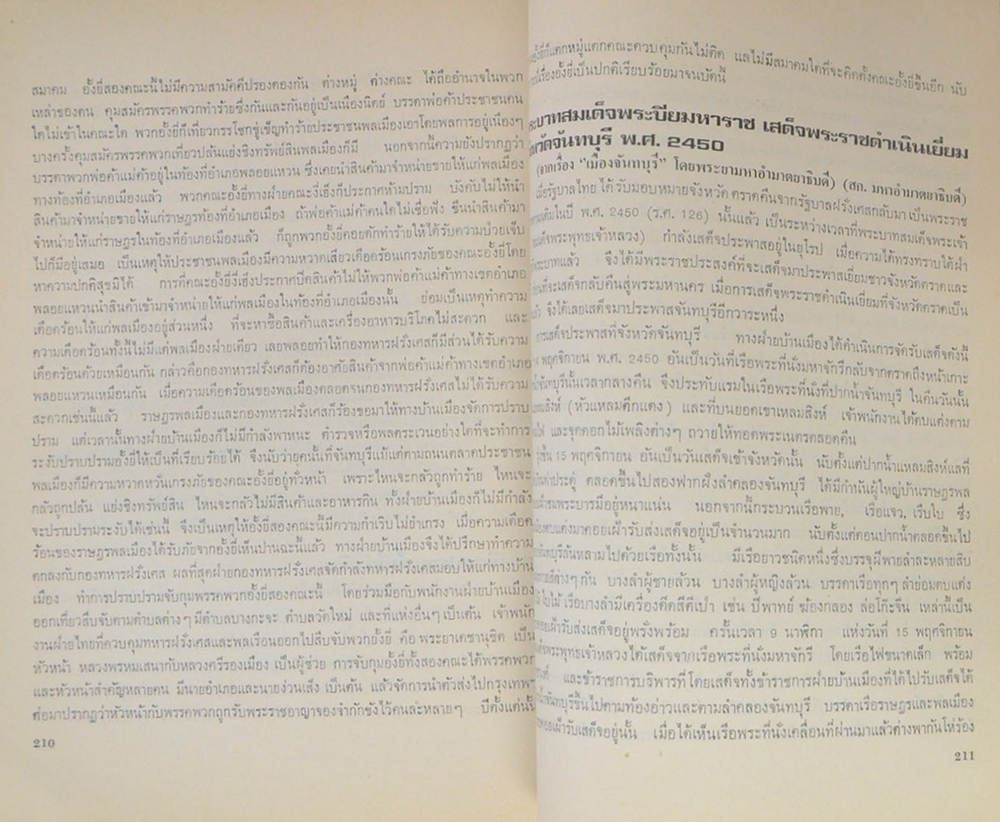 สมาคม อั้งยี่สองคณะนี้ไม่มีความสามัคคีปรองดองกัน ต่างหมู่ ต่างคณะ ได้ถืออำนาจในพวก
เหล่าของตน คุมสมัครพรรคพวกทำร้ายซึ่งกันและกันอยู่เป็นเนืองนิตย์ บรรดาพ่อค้าประชาชนคน
ใดไม่เข้าในคณะใด พวกอั้งยี่ก็เที่ยวกรรโชกขู่เข็ญทำร้ายประชาชนพลเมืองเอาโดยพลการอยู่เนืองๆ
บางครั้งคุมสมัครพรรคพวกเที่ยวปล้นแย่งชิงทรัพย์สินพลเมืองก็มี นอกจากนี้ความยังปรากฏว่า
บรรดาพวกพ่อค้าแม่ค้าอยู่ในท้องที่อำเภอพลอยแหวน ซึ่งเคยนำสินค้ามาจำหน่ายขายให้แก่พลเมือง
ทางท้องที่อำเภอเมืองแล้ว พวกคณะอั้งยี่ทางฝ่ายคณะงี่เฮ็งก็ประกาศห้ามปราม บังคับไม่ให้นำ
สินค้ามาจำหน่ายขายให้แก่ราษฎรท้องที่อำเภอเมือง ถ้าพ่อค้าแม่ค้าคนใดไม่เชื่อฟัง ขืนนำสินค้ามา
จำหน่ายให้แก่ราษฎรในท้องที่อำเภอเมืองแล้ว ก็ถูกพวกอั้งยี่คอยดักทำร้ายให้ได้รับความป่วยเจ็บ
ไปก็มีอยู่เสมอ เป็นเหตุให้ประชาชนพลเมืองมีความหวาดเสียวเดือดร้อนเกรงภัยของคณะอั้งยี่โดย
หาความปกติสุขมิได้ การที่คณะอั้งยี่งี่เฮ็งประกาศปิดสินค้าไม่ให้พวกพ่อค้าแม่ค้าทางเขตอำเภอ
พลอยแหวนนำสินค้าเข้ามาจำหน่ายให้แก่พลเมืองในท้องที่อำเภอเมืองนั้น ย่อมเป็นเหตุทำความ
เดือดร้อนให้แก่พลเมืองอยู่ส่วนหนึ่ง ที่จะหาซื้อสินค้าและเครื่องอาหารบริโภคไม่สะดวก และ
ความเดือดร้อนทั้งนี้ไม่มีแต่พลเมืองฝ่ายเดียว เลยพลอยทำให้กองทหารฝรั่งเศสก็มีส่วนได้รับความ
เดือดร้อนด้วยเหมือนกัน กล่าวคือกองทหารฝรั่งเศสก็ต้องอาศัยสินค้าจากพ่อค้าแม่ค้าทางเขตอำเภอ
พลอยแหวนเหมือนกัน เมื่อความเดือดร้อนของพลเมืองตลอดจนกองทหารฝรั่งเศสไม่ได้รับความ
สะดวกเช่นนี้แล้ว ราษฎรพลเมืองและกองทหารฝรั่งเศสก็ร้องขอมาให้ทางบ้านเมืองจัดการปราบ
ปราม แต่เวลานั้นทางฝ่ายบ้านเมืองก็ไม่มีกำลังพาหนะ ตำรวจหรือพลตระเวนอย่างใดที่จะทำการ
ระงับปราบปรามอั้งยี่ให้เป็นที่เรียบร้อยได้ จึงนับว่ายุคนั้นที่จันทบุรีแม้แต่ตามถนนตลาดประชาชน
พลเมืองก็มีความหวาดหวั่นเกรงภัยของคณะอั้งยี่อยู่ทั่วหน้า เพราะไหนจะกลัวถูกทำร้าย ไหนจะ
กลัวถูกปล้น แย่งชิงทรัพย์สิน ไหนจะกลัวไม่มีสินค้าและอาหารกิน ทั้งฝ่ายบ้านเมืองก็ไม่มีกำลัง
จะปราบปรามระงับได้เช่นนี้ จึงเป็นเหตุให้อั้งยี่สองคณะนี้มีความกำเริบไม่ยำเกรง เมื่อความเดือด
ร้อนของราษฎรพลเมืองได้รับภัยจากอั้งยี่เห็นปานฉะนี้แล้ว ทางฝ่ายบ้านเมืองจึงได้ปรึกษาทำความ
ตกลงกับกองทหารฝรั่งเศส ผลที่สุดฝ่ายกองทหารฝรั่งเศสจัดกำลังทหารฝรั่งเศสมอบให้แก่ทางบ้าน
เมือง ทำการปราบปรามจับกุมพรรคพวกอั้งยี่สองคณะนี้ โดยร่วมมือกับพนักงานฝ่ายบ้านเมือง
ออกเที่ยวสืบจับตามตำบลต่างๆ มีตำบลบางกะจะ ตำบลวัดใหม่ และที่แห่งอื่นๆ เป็นต้น เจ้าพนัก
งานฝ่ายไทยที่ควบคุมทหารฝรั่งเศสและพลเรือนออกไปสืบจับพวกอั้งยี่ คือ พระยาเดชานุชิต เป็น
หัวหน้า หลวงพรหมเสนากับหลวงศรีรองเมือง เป็นผู้ช่วย การจับกุมอั้งยี่ทั้งสองคณะได้พรรคพวก
และหัวหน้าสำคัญหลายคน มีนายอำเภอและนายง่วนเส็ง เป็นต้น แล้วจัดการนำตัวส่งไปกรุงเทพ
ต่อมาปรากฏว่าหัวหน้ากับพรรคพวกถูกรับพระราชอาญาจองจำกักขังไว้คนละหลายๆ ปีตั้งแต่นั้น
210
อั้งยี่ก็แตกหมู่แตกคณะควบคุมกันไม่ติด แลไม่มีสมาคมใดที่จะคิดตั้งคณะอั้งยี่ขึ้นอีก นับ
เรื่องอั้งยี่เป็นปกติเรียบร้อยมาจนบัดนี้
ระบาทสมเด็จพระปิยมหาราช เสด็จพระราชดำเนินเยี่ยม
หวัดจันทบุรี พ.ศ. 2450
(จากเรื่อง "เมืองจันทบุรี" โดยพระยามหาอำมาตยาธิบดี) (สก. มหาอำมาตยาธิบดี)
เมื่อรัฐบาลไทย ได้รับมอบหมายจังหวัด ตราดคืนจากรัฐบาลฝรั่งเศสกลับมา เป็นพระราช
เดิมในปี พ.ศ. 2450 (ร.ศ. 126) นั้นแล้ว เป็นระหว่างเวลาที่พระบาทสมเด็จพระเจ้า
เด็จพระพุทธเจ้าหลวง) กำลังเสด็จประพาสอยู่ในยุโรป เมื่อความได้ทรงทราบใต้ฝ่า
พระบาทแล้ว จึงได้มีพระราชประสงค์ที่จะเสด็จมาประพาสเยี่ยมชาวจังหวัดตราดและ
ที่จะเสด็จกลับคืนสู่พระมหานคร เมื่อการเสด็จพระราชดำเนินเยี่ยมที่จังหวัดตราดเป็น
แล้ว จึงได้เลยเสด็จมาประพาสจันทบุรีอีกวาระหนึ่ง
การเสด็จประพาสที่จังหวัดจันทบุรี ทางฝ่ายบ้านเมืองได้ดำเนินการจัดรับเสด็จดังนี้
พฤศจิกายน พ.ศ. 2450 อันเป็นวันที่เรือพระที่นั่งมหาจักรีกลับจากตราดถึงหน้าเกาะ
จันทบุรีนั้นเวลากลางคืน จึงประทับแรมในเรือพระที่นั่งที่ปากน้ำจันทบุรี ในคืนวันนั้น
แหลมสิงห์ (หัวแหลมตึกแดง) และที่บนยอดเขาแหลมสิงห์ เจ้าพนักงานได้ตบแต่งตาม
ไฟ และจุดดอกไม้เพลิงต่างๆ ถวายให้ทอดพระเนตรตลอดคืน
รุ่งขึ้น 15 พฤศจิกายน อันเป็นวันเสด็จเข้าจังหวัดนั้น นับตั้งแต่ปากน้ำแหลมสิงห์แลที่
ประตู่ ตลอดขึ้นไปสองฟากฝั่งลำคลองจันทบุรี ได้มีกำนันผู้ใหญ่บ้านราษฎรพล
สมพระบารมีอยู่หนาแน่น นอกจากนี้กระบวนเรือพาย, เรือแจว, เรือใบ ซึ่ง
ตบแต่งมาคอยเฝ้ารับส่งเสด็จอยู่เป็นจำนวนมาก นับตั้งแต่ตอนปากน้ำตลอดขึ้นไป
จันทบุรีล้นหลามไปด้วยเรือทั้งนั้น มีเรือยาวชนิดหนึ่งซึ่งบรรจุฝีพายลำละหลายสิบ
ต่างๆ กัน บางลำผู้ชายล้วน บางลำผู้หญิงล้วน บรรดาเรือทุกๆ ลำย่อมตบแต่ง
ใบไม้ เรือบางลำมีเครื่องดีดสีตีเป่า เช่น ปี่พาทย์ ฆ้องกลอง ล่อโก๊จีน เหล่านี้เป็น
คอยเฝ้ารับส่งเสด็จอยู่พรั่งพร้อม ครั้นเวลา 9 นาฬิกา แห่งวันที่ 15 พฤศจิกายน
พระพุทธเจ้าหลวงได้เสด็จจากเรือพระที่นั่งมหาจักรี โดยเรือไฟขนาดเล็ก พร้อม
และข้าราชการบริพารที่โดยเสด็จทั้งข้าราชการฝ่ายบ้านเมืองที่ได้ไปรับเสด็จได้
จันทบุรีขึ้นไปตามท้องอ่าวและตามลำคลองจันทบุรี บรรดาเรือราษฎรและพลเมือง
คอยเฝ้ารับเสด็จอยู่นั้น เมื่อได้เห็นเรือพระที่นั่งเคลื่อนที่ผ่านมาแล้วต่างพากันโห่ร้อง
211